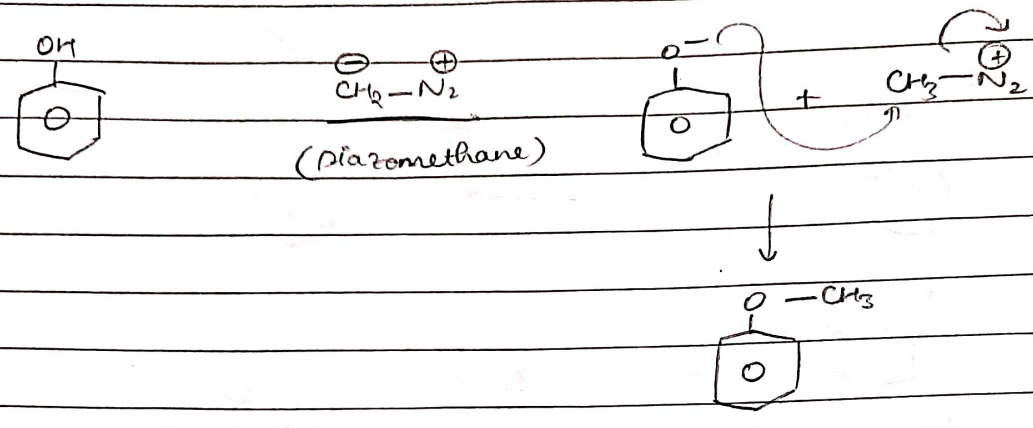 OH
⊖ ⊕
CH2 — N2
(Diazomethane)
O−
+
CH3 — N2 ⊕
O — CH3